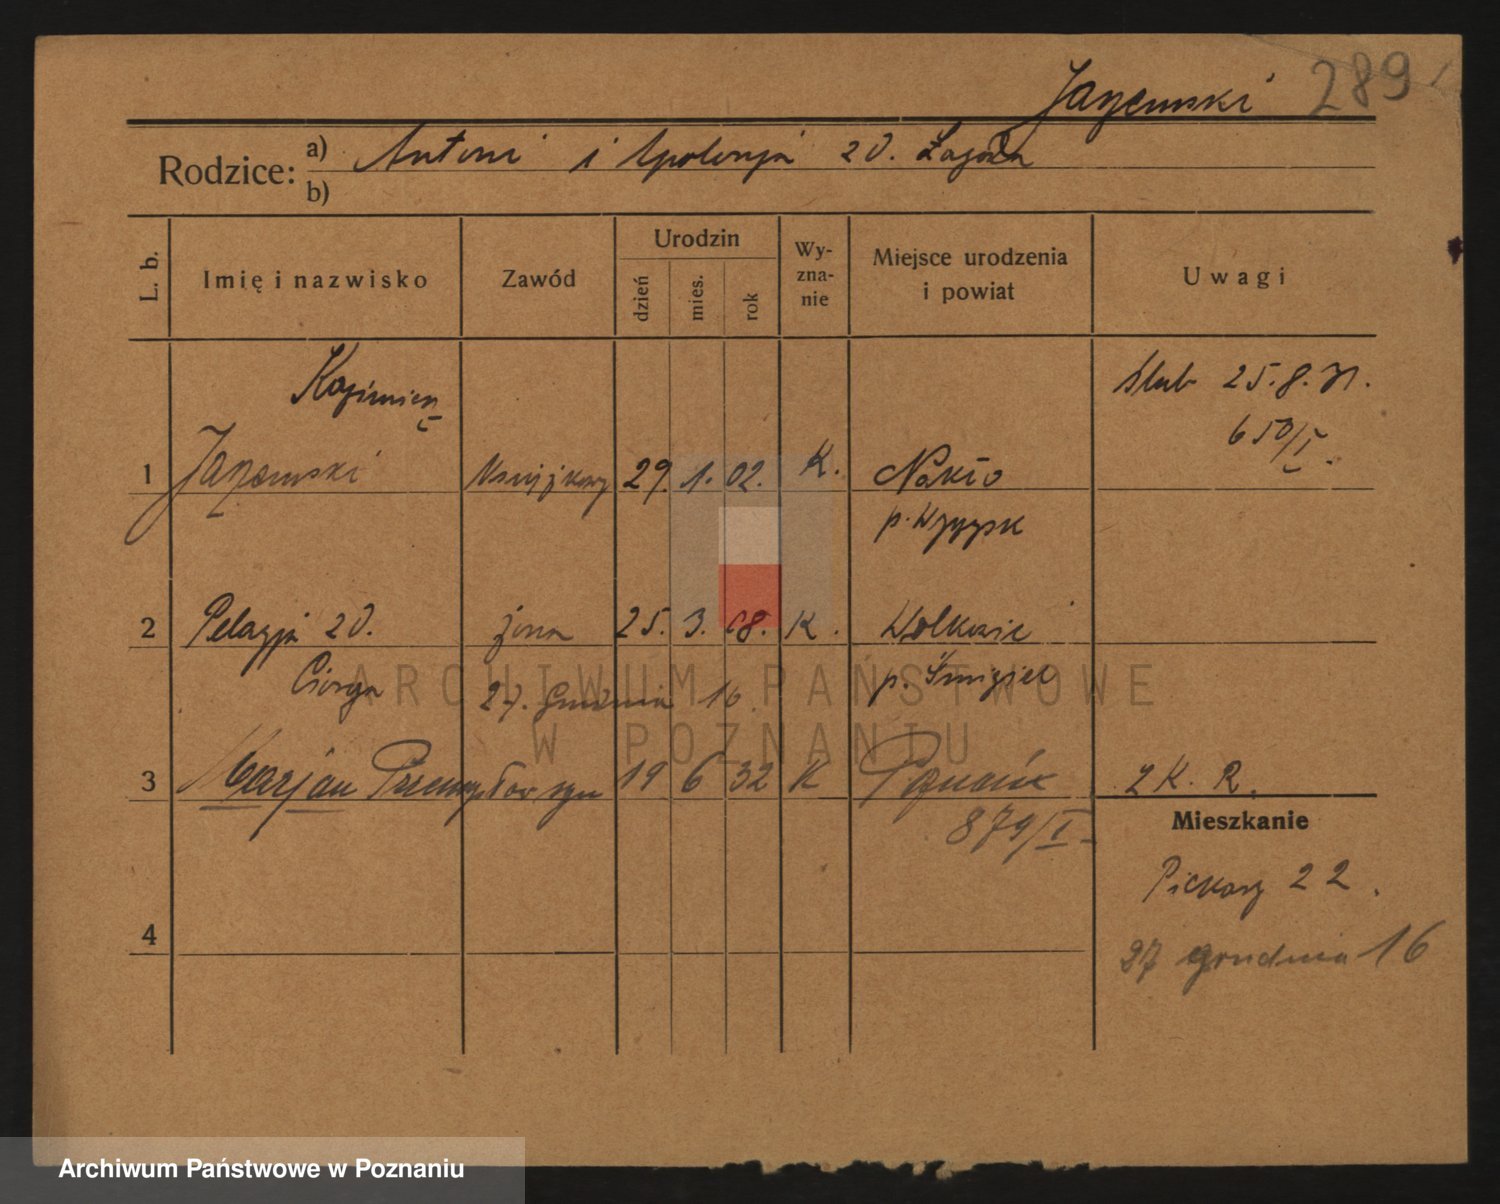 289
Rodzice:
a) Antoni i Apolonja zd. Łagoda
b)
L. b.
Imię i nazwisko
Zawód
Urodzin
dzień
mies.
rok
Wy-
zna-
nie
Miejsce urodzenia
i powiat
Uwagi
Kazimierz
1 29. 1. 02. K. Nakło
p. Wyrzysk
ślub 25.8.31.
650/I.
2 Pelagja zd. żona 25. 3. 08. K. Wolkowie
p. Śmigiel
27. Grudnia 16.
3 Marjan Przemysław syn 19 6 32 K Poznań
879/I
Z K. R.
Mieszkanie
Piekary 22.
27 grudnia 16
4
ARCHIWUM PAŃSTWOWE
W POZNANIU
Archiwum Państwowe w Poznaniu